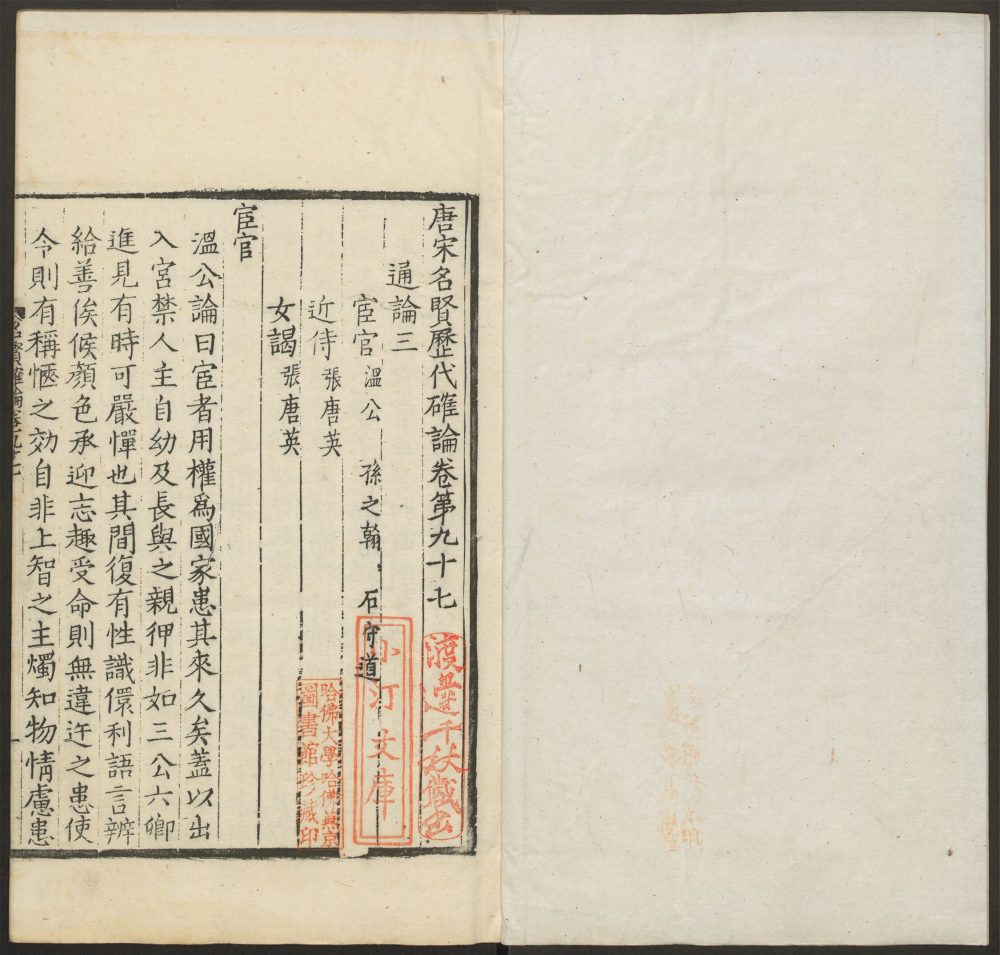 唐宋名賢歷代碓論卷第九十七
通論三
宦官 溫公 孫之翰 石守道
近侍 張唐英
女謁 張唐英
宦官
溫公論曰宦者用權為國家患其來久矣蓋以出
入宮禁人主自幼及長與之親狎非如三公六卿
進見有時可嚴憚也其間復有性識儇利語言辨
給善俟候顏色承迎志趣受命則無違迕之患使
令則有稱愜之効自非上智之主燭知物情慮患
渡邊千秋藏書
小汀文庫
哈佛大學哈佛燕京
圖書館珍藏印